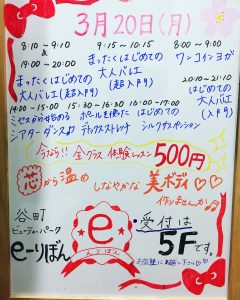 3月20日(月)
8:10〜9:10
&
19:00〜20:00
まったくはじめての
大人バレエ
(超入門)
9:15〜10:15
まったくはじめての
大人バレエ
(超入門)
8:00〜9:00
ワンコインヨガ
20:10〜21:10
はじめての
大人バレエ
(入門)
14:00〜15:00
ミセスから始める
シアターダンス♪
15:30〜16:30
ポールを使った
デトックスストレッチ
16:00〜17:00
はじめての
シルクサスペンション
今なら!! 全クラス 体験レッスン 500円
芯から温め
しなやかな 美ボディ♡♡
作りませんか♪
谷町
ビューティーパーク
e-りぼん
e
えりぼん
受付は
5Fです。
お気軽にお越し下さい♡